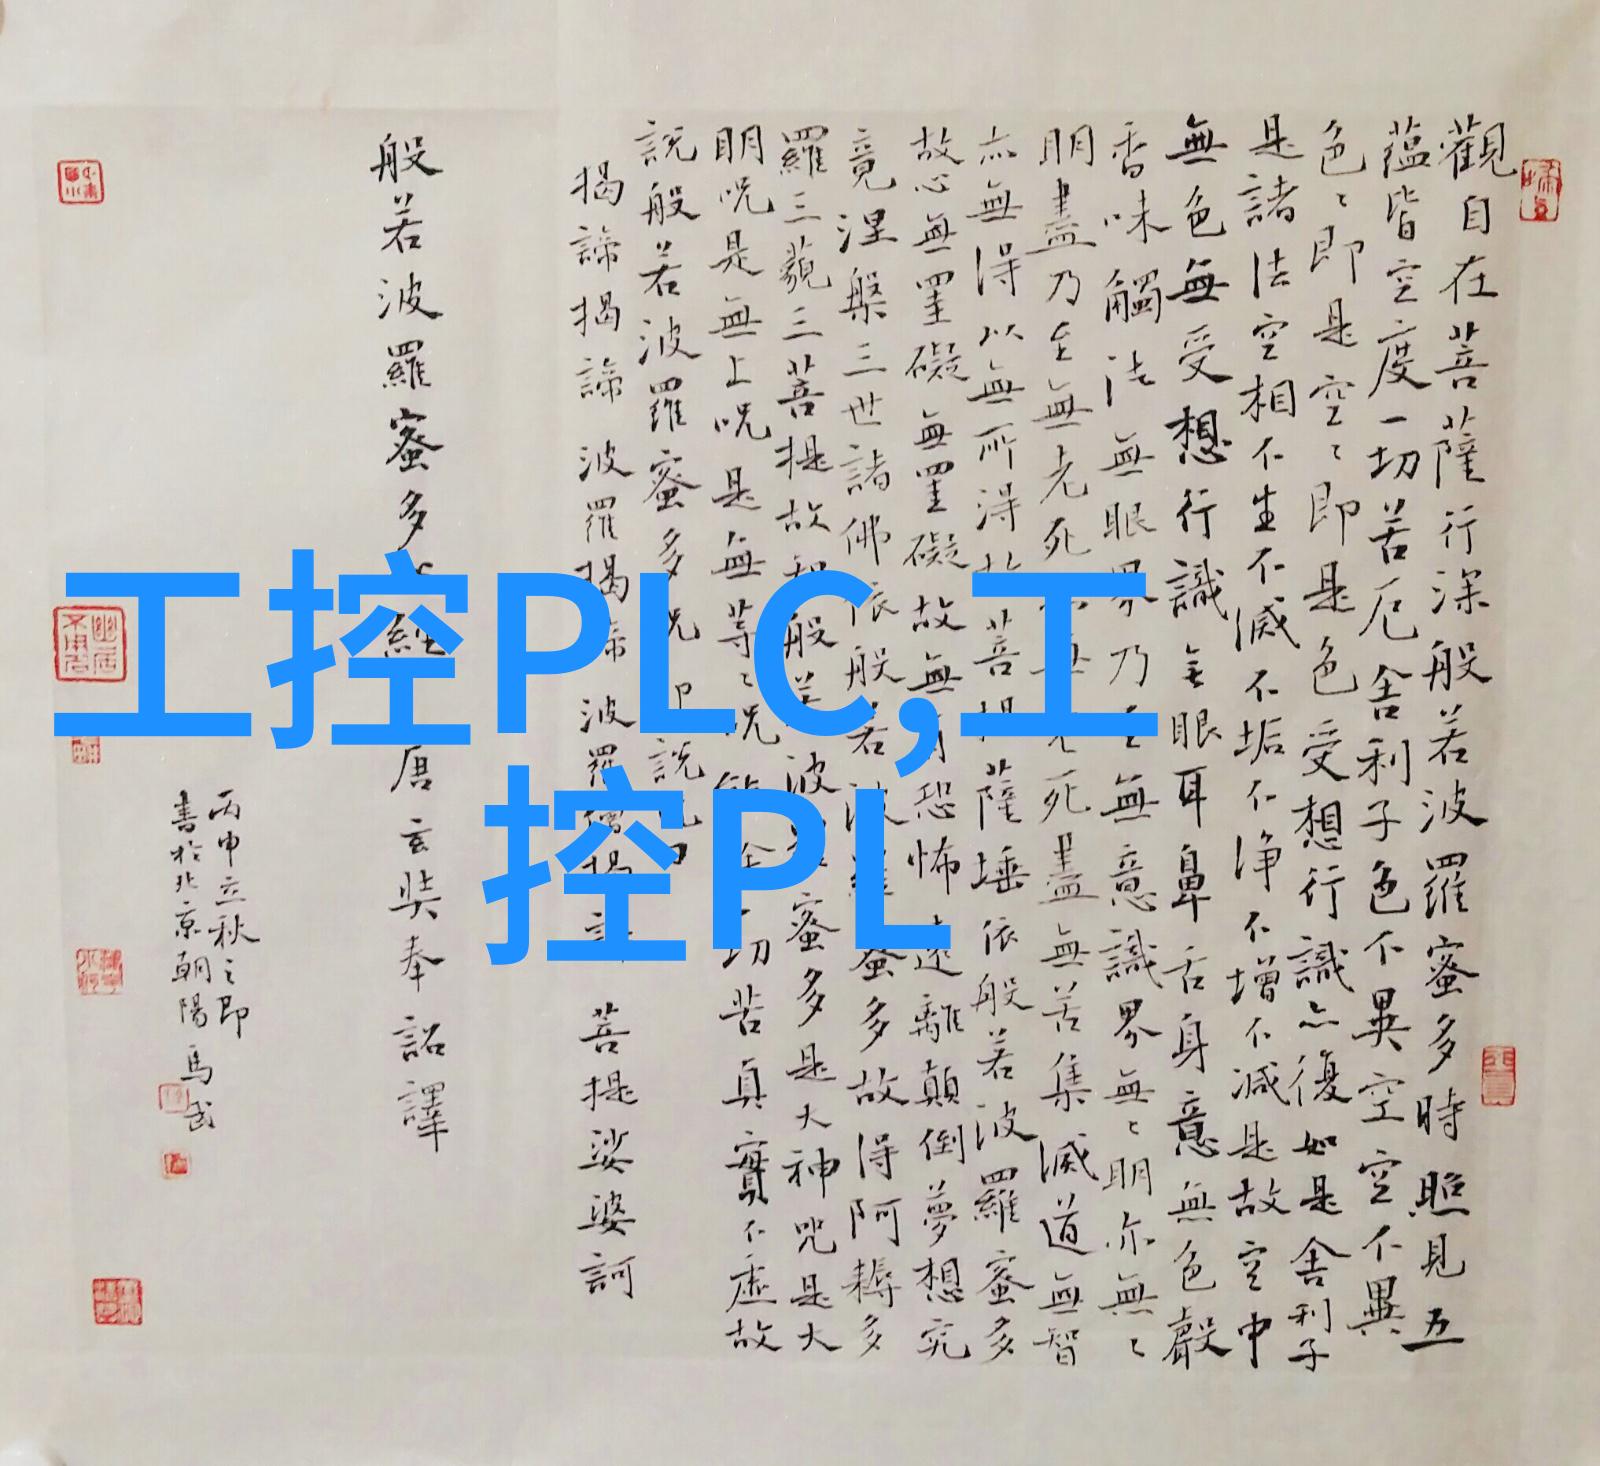 觀自在菩薩行深般若波羅蜜多時照見五
蕴皆空度一切苦厄舍利子色不異空空不異
色〻即是空〻即是色受想行識亦復如是舍利子
是諸法空相不生不滅不垢不淨不增不減是故空中
無色無受想行識無眼耳鼻舌身意無色聲
香味觸法無眼界乃至無意識界無〻明亦無〻
明盡乃至無老死亦無老死盡無苦集滅道無智
亦無得以無所得故菩提薩埵依般若波羅蜜多
故心無罣礙無罣礙故無有恐怖遠離顛倒夢想究
竟涅槃三世諸佛依般若波羅蜜多故得阿耨多
羅三藐三菩提故知般若波羅蜜多是大神咒是大
明咒是無上咒是無等〻咒能除一切苦真實不虛故
說般若波羅蜜多咒即說咒曰
揭諦揭諦波羅揭諦波羅僧揭諦菩提娑婆訶
般若波羅蜜多心經唐玄奘奉詔譯
丙申立秋之即
書於北京朝陽馬武
工控PLC,工
控PL